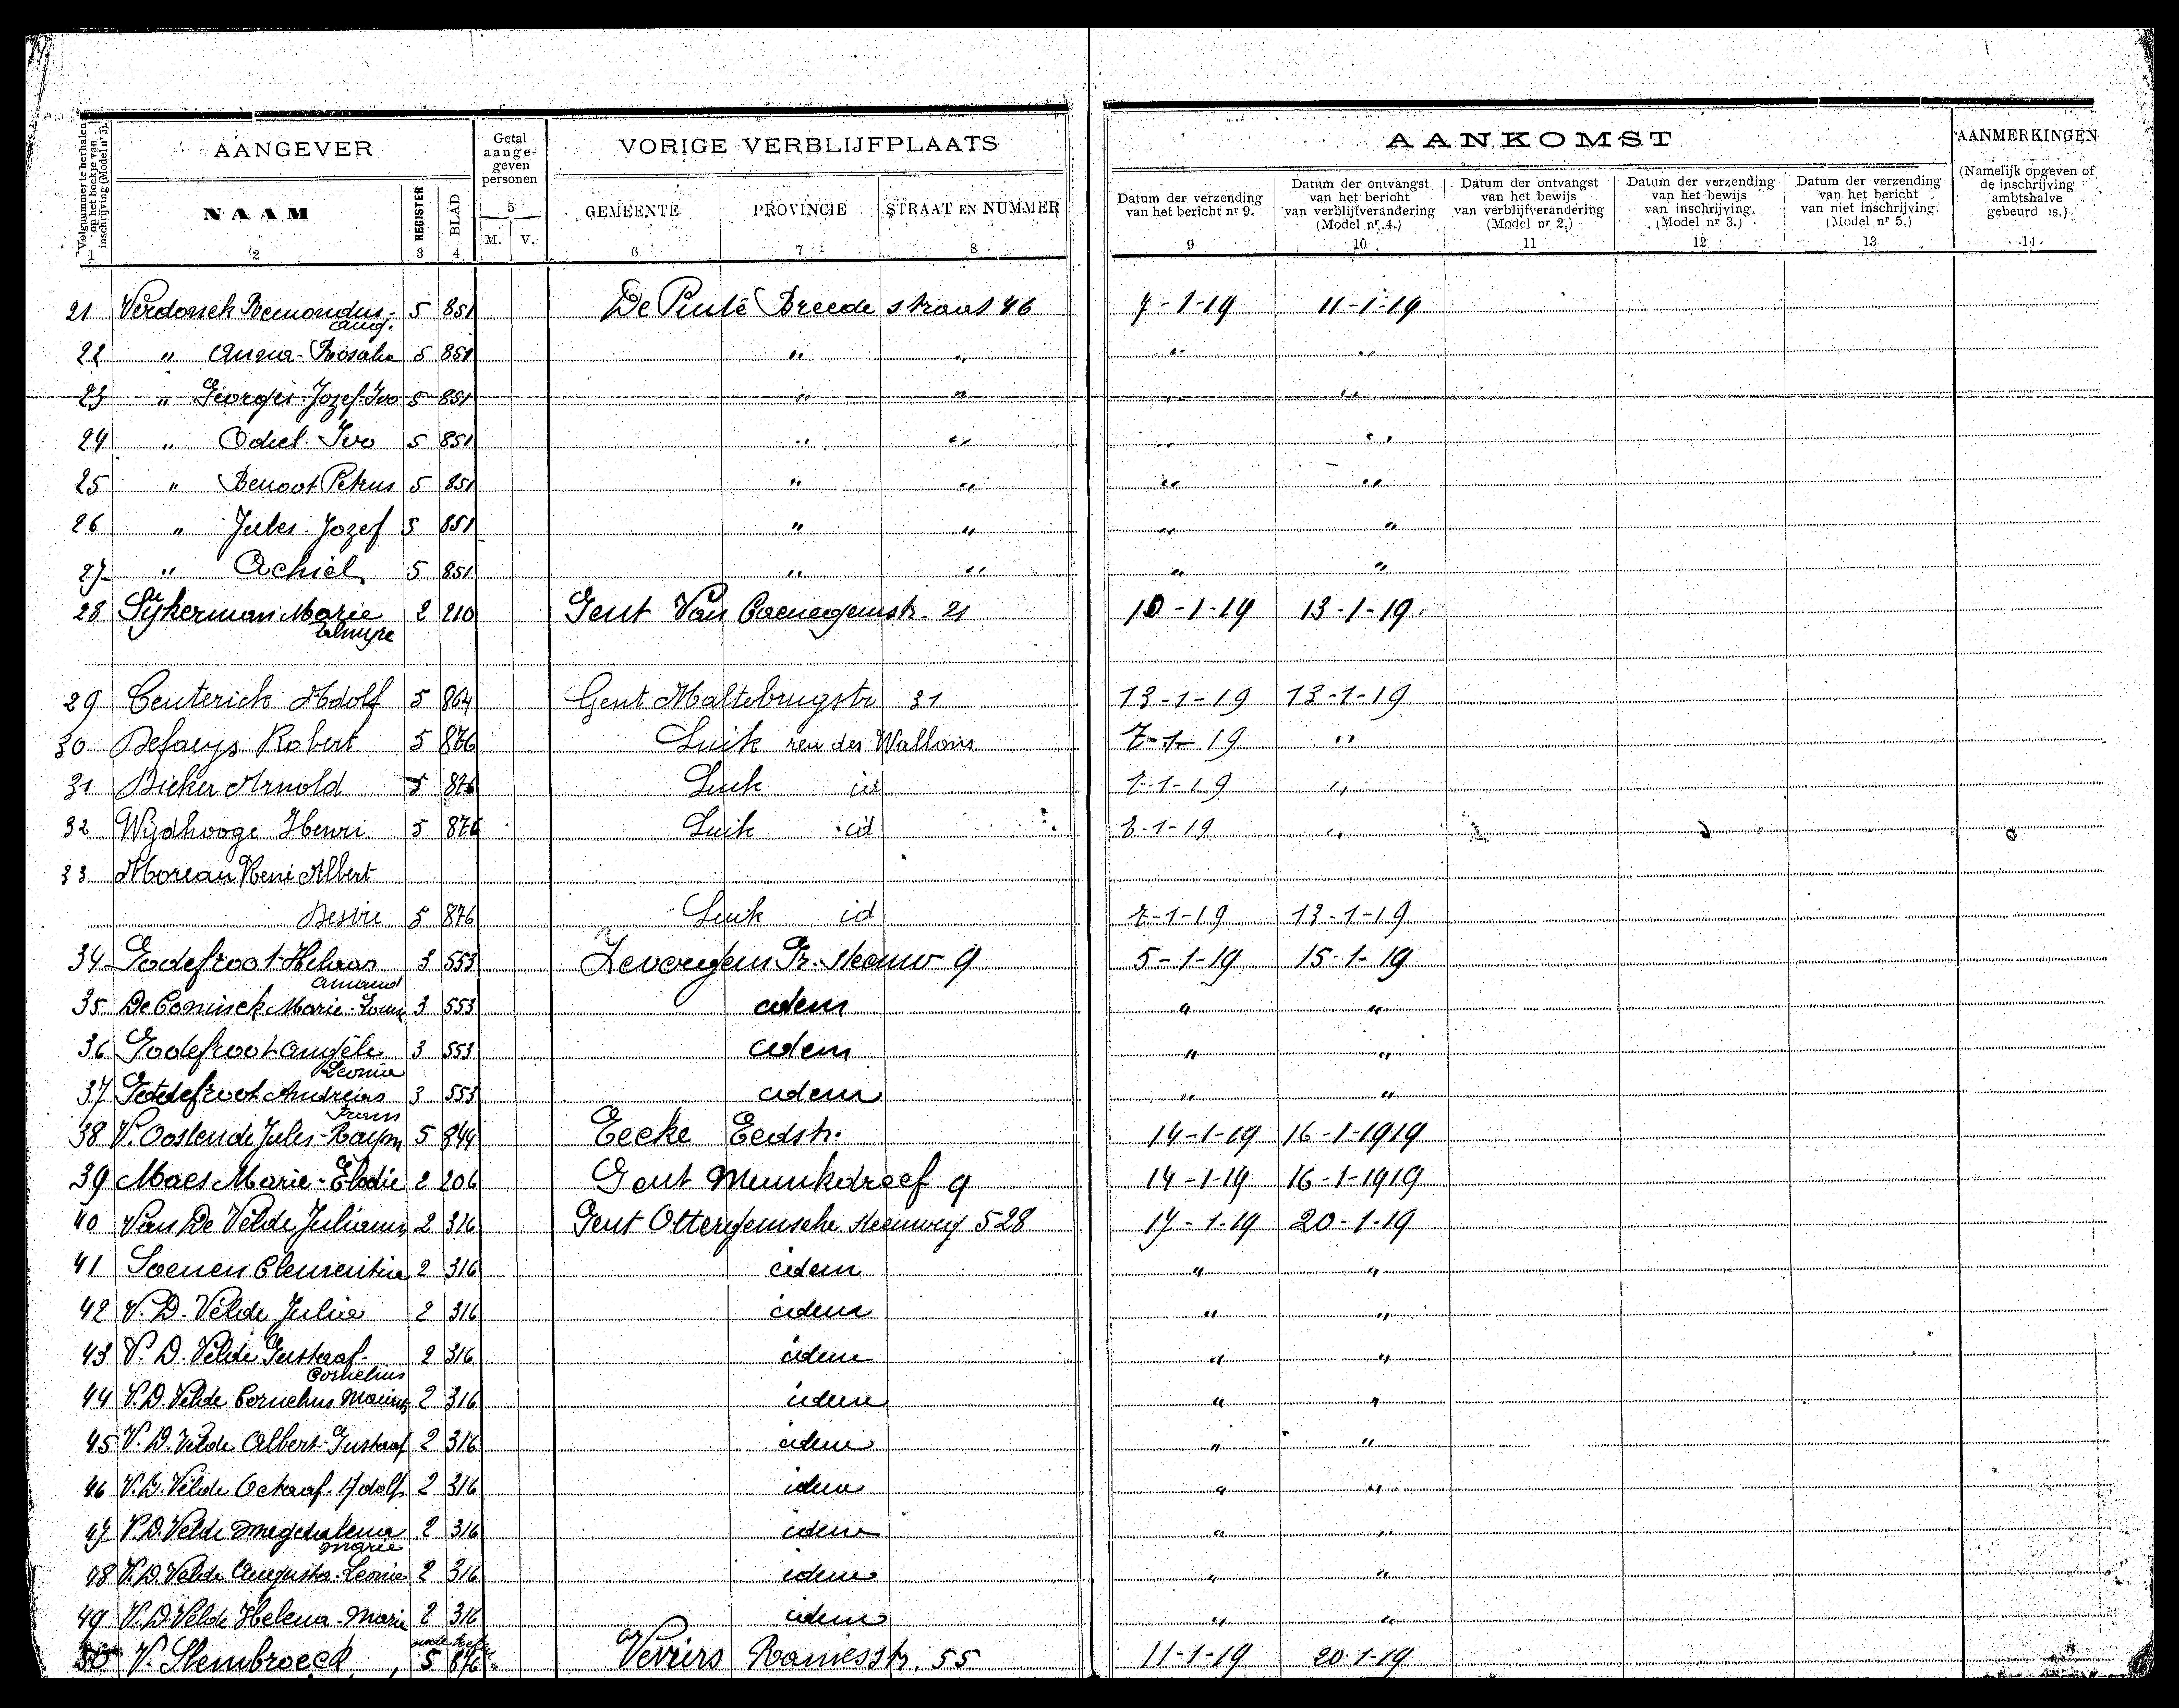 AANGEVER
Getal aangegeven personen
VORIGE VERBLIJFPLAATS
AANKOMST
AANMERKINGEN
Volgnummer te herhalen op het boekje van inschrijving (Model nr 3).
NAAM
REGISTER
BLAD
M. V.
GEMEENTE
PROVINCIE
STRAAT EN NUMMER
Datum der verzending van het bericht nr 9.
Datum der ontvangst van het bericht van verblijfverandering (Model nr 4.)
Datum der ontvangst van het bewijs van verblijfverandering (Model nr 2.)
Datum der verzending van het bewijs van inschrijving. (Model nr 3.)
Datum der verzending van het bericht van niet inschrijving. (Model nr 5.)
(Namelijk opgeven of de inschrijving ambtshalve gebeurd is.)
1 2 3 4 5 6 7 8 9 10 11 12 13 14
21 Verdonck Remondus- 5 851 De Pinte Breede straat 46 7-1-19 11-1-19
Aug.
22 " Anna-Rosalia 5 851 " " " "
23 " Georges-Jozef-Ivo 5 851 " " " "
24 " Odiel-Ivo 5 851 " " " "
25 " Benoot Petrus 5 851 " " " "
26 " Jules-Jozef 5 851 " " " "
27 " Achiel 5 851 " " " "
28 Sijkerman Marie 2 210 Gent Van Caenegemstr. 21 10-1-19 13-1-19.
29 Centerick Adolf 5 864 Gent Maltebrugstr 31 13-1-19 13-1-19
30 Defaeys Robert 5 876 Luik reu des Wallons 7-1-19 "
31 Bieker Arnold 5 876 Luik id 7-1-19 "
32 Wijdhooge Henri 5 876 Luik id 7-1-19 "
33 Moreau René Albert
5 876 Luik id 7-1-19 13-1-19
34 Godefroot 3 553 Zevergem Gr. steenw 9 5-1-19 15-1-19
Amand
35 De Coninck Marie- 3 553 idem " "
36 Godefroot Angèle 3 553 idem " "
Leonia
37 Godefroot Andreas 3 553 idem " "
Frans
38 V. Oostende Jules-Raym 5 844 Eecke Eedstr. 14-1-19 16-1-1919
39 Maes Marie-Elodie 2 206 Gent Munkdreef 9 14-1-19 16-1-1919
40 Van De Velde Julianus 2 316 Gent Ottergemsche steenweg 528 17-1-19 20-1-19
41 Soenen Clementina 2 316 idem " "
42 V. D. Velde Julia 2 316 idem " "
43 V. D. Velde Gustaaf- 2 316 idem " "
Cornelius
44 V. D. Velde Cornelius Maurits 2 316 idem " "
45 V. D. Velde Albert-Gustaaf 2 316 idem " "
46 V. D. Velde Octaaf-Adolf 2 316 idem " "
47 V. D. Velde Magdalena 2 316 idem " "
Marie
48 V. D. Velde Augusta-Leonie 2 316 idem " "
49 V. D. Velde Helena-Marie 2 316 idem " "
50 V. Stembroeck 5 876 Verviers 55 11-1-19 20-1-19